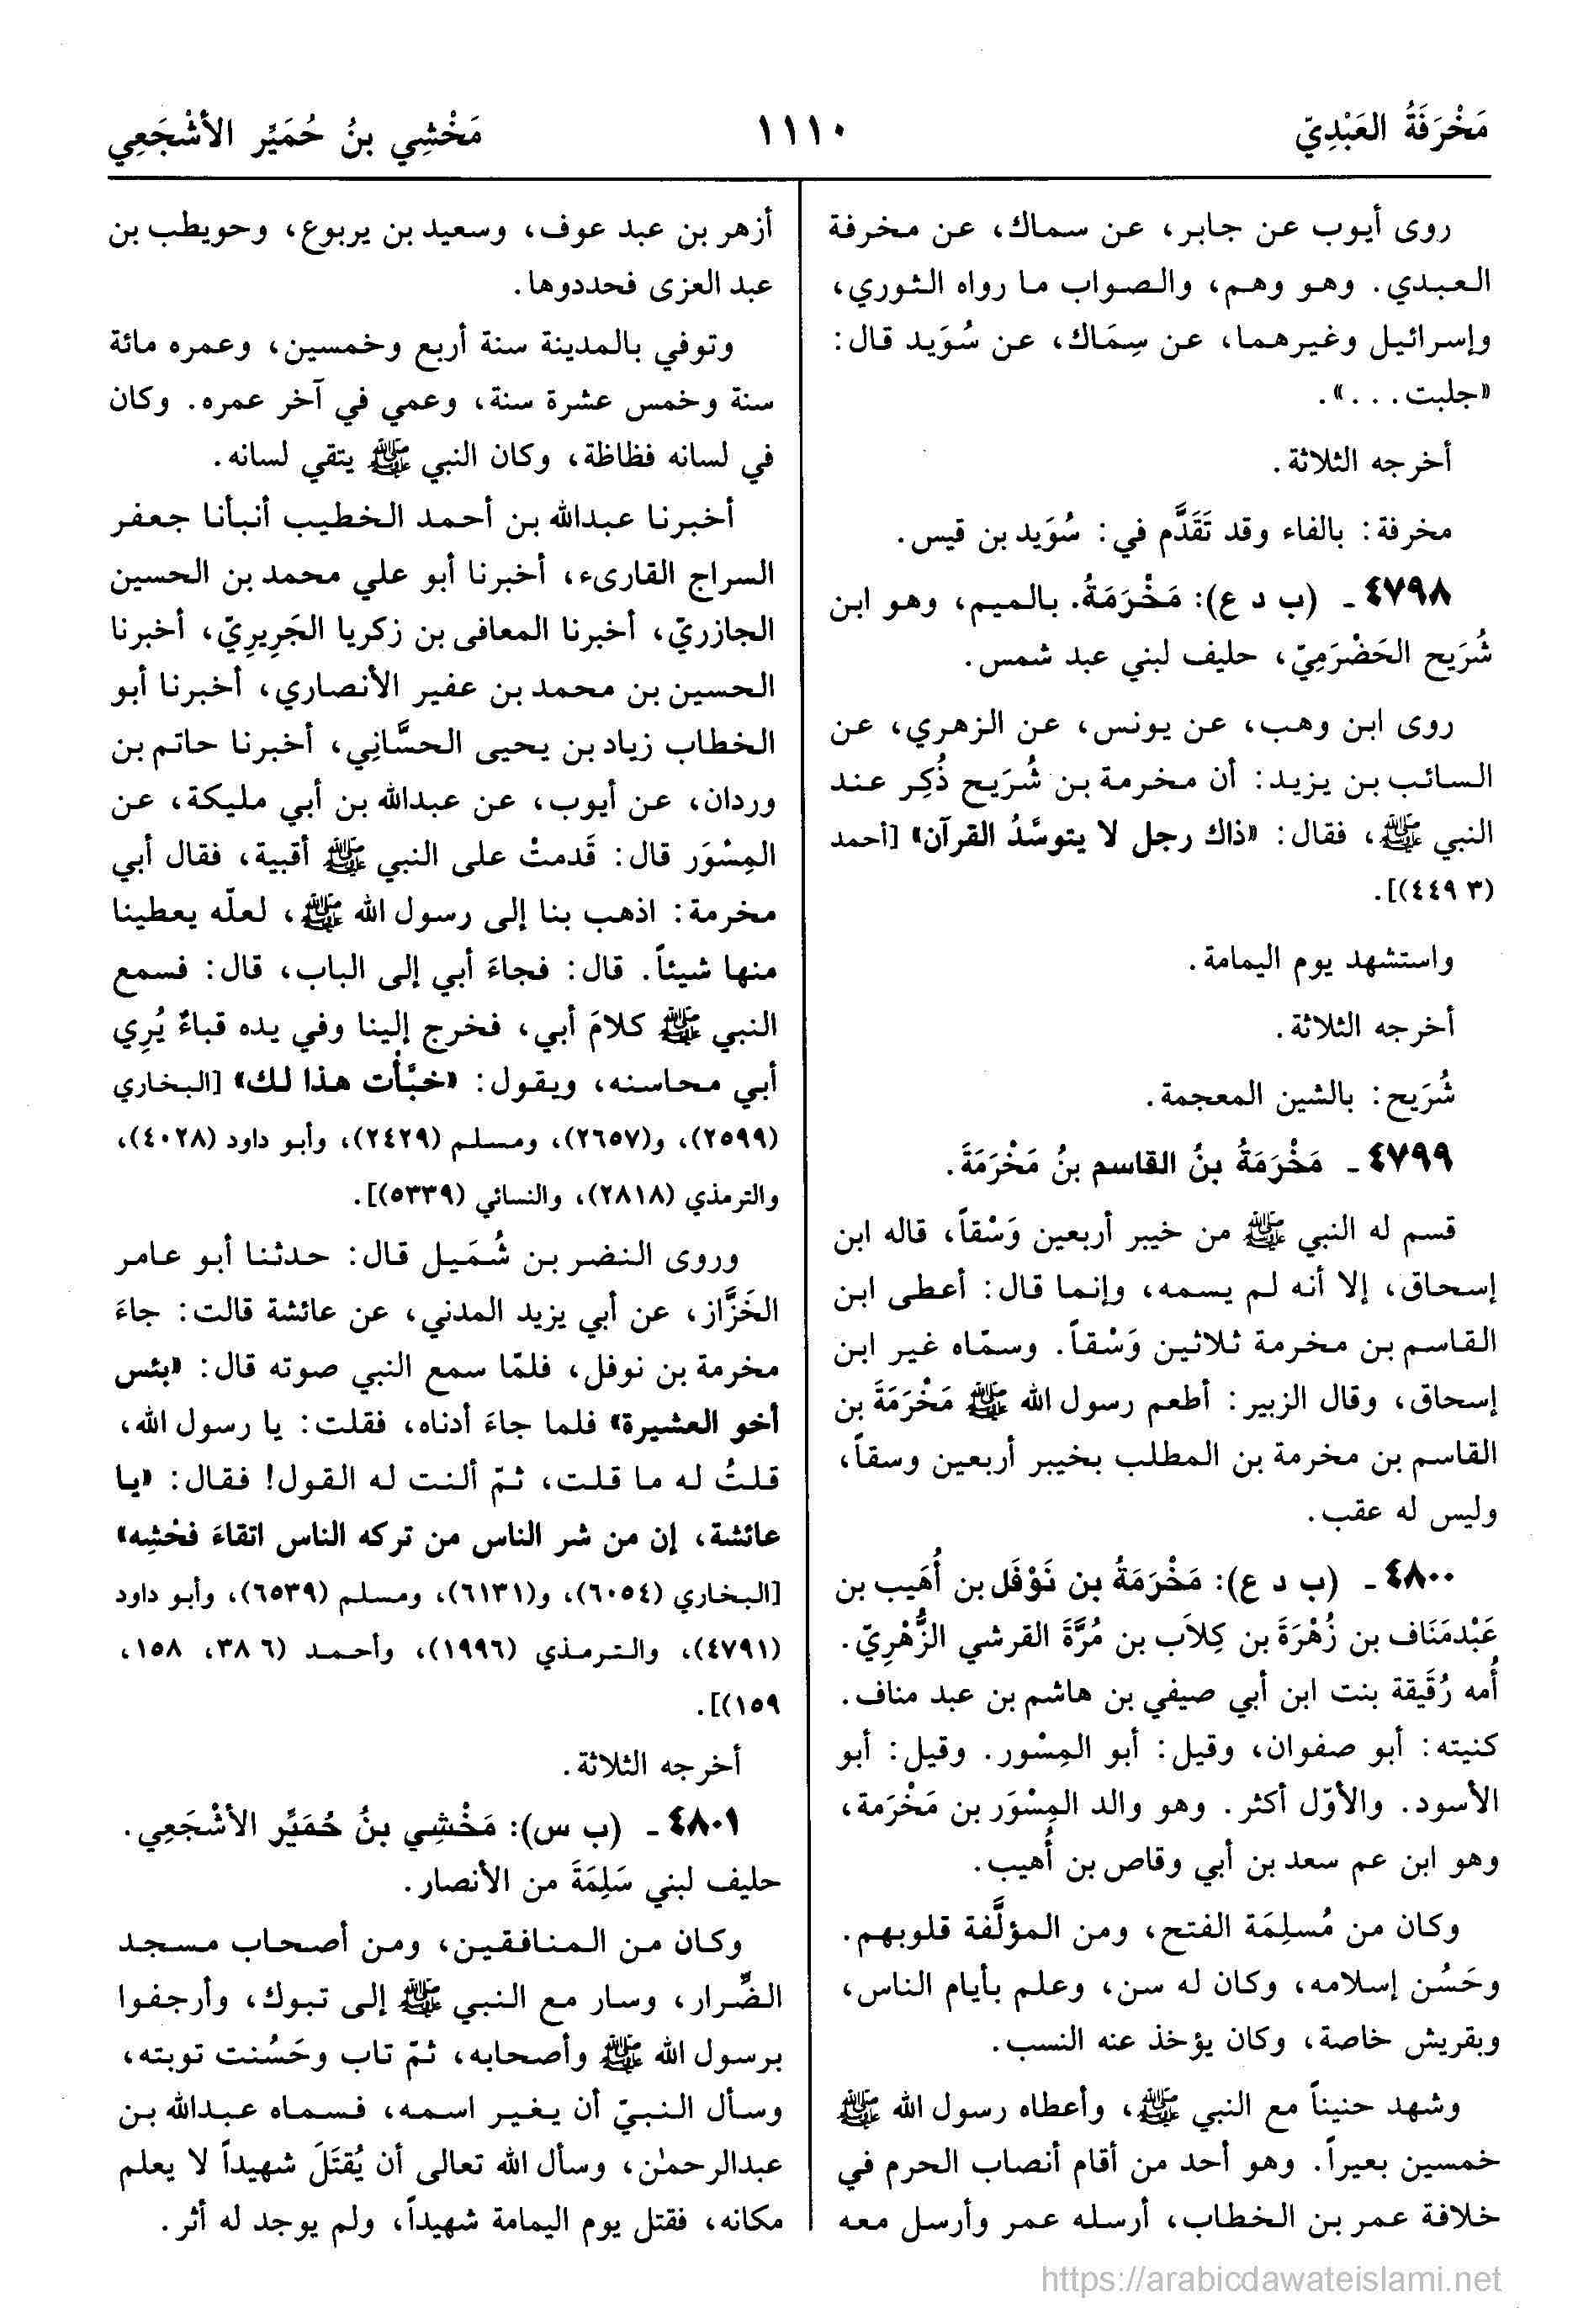 مَخْرَفَةُ العَبْدِيّ
١١١٠
مَخْشِي بنُ حُمَيِّر الأشْجَعِي
روى أيوب عن جابر، عن سماك، عن مخرفة
العبدي. وهو وهم، والصواب ما رواه الثوري،
وإسرائيل وغيرهما، عن سِمَاك، عن سُوَيد قال:
«جلبت...».
أخرجه الثلاثة.
مخرفة: بالفاء وقد تَقَدَّم في: سُوَيد بن قيس.
٤٧٩٨ - (ب د ع): مَخْرَمَةُ. بالميم، وهو ابن
شُرَيح الحَضْرَمِيّ، حليف لبني عبد شمس.
روى ابن وهب، عن يونس، عن الزهري، عن
السائب بن يزيد: أن مخرمة بن شُرَيح ذُكِر عند
النبي ﷺ، فقال: «ذاك رجل لا يتوسَّدُ القرآن» [أحمد
(٣ ٤٤٩)].
واستشهد يوم اليمامة.
أخرجه الثلاثة.
شُرَيح: بالشين المعجمة.
٤٧٩٩ - مَخْرَمَةُ بنُ القاسم بنُ مَخْرَمَةَ.
قسم له النبي ﷺ من خيبر أربعين وَسْقاً، قاله ابن
إسحاق، إلا أنه لم يسمه، وإنما قال: أعطى ابن
القاسم بن مخرمة ثلاثين وَسْقاً. وسمّاه غير ابن
إسحاق، وقال الزبير: أطعم رسول الله ﷺ مَخْرَمَةَ بن
القاسم بن مخرمة بن المطلب بخيبر أربعين وسقاً،
وليس له عقب.
٤٨٠٠ - (ب د ع): مَخْرَمَةُ بن نَوْفَل بن أُهَيب بن
عَبْدمَنَاف بن زُهْرَةَ بن كِلاَب بن مُرَّةَ القرشي الزُّهْرِيّ.
أُمه رُقَيقة بنت ابن أبي صيفي بن هاشم بن عبد مناف.
كنيته: أبو صفوان، وقيل: أبو المِسْور. وقيل: أبو
الأسود. والأوّل أكثر. وهو والد المِسْوَر بن مَخْرَمة،
وهو ابن عم سعد بن أبي وقاص بن أُهيب.
وكان من مُسلِمَة الفتح، ومن المؤلَّفة قلوبهم.
وحَسُن إسلامه، وكان له سن، وعلم بأيام الناس،
وبقريش خاصة، وكان يؤخذ عنه النسب.
وشهد حنيناً مع النبي ﷺ، وأعطاه رسول الله ﷺ
خمسين بعيراً. وهو أحد من أقام أنصاب الحرم في
خلافة عمر بن الخطاب، أرسله عمر وأرسل معه
أزهر بن عبد عوف، وسعيد بن يربوع، وحويطب بن
عبد العزى فحددوها.
وتوفي بالمدينة سنة أربع وخمسين، وعمره مائة
سنة وخمس عشرة سنة، وعمي في آخر عمره. وكان
في لسانه فظاظة، وكان النبي ﷺ يتقي لسانه.
أخبرنا عبدالله بن أحمد الخطيب أنبأنا جعفر
السراج القارىء، أخبرنا أبو علي محمد بن الحسين
الجازريّ، أخبرنا المعافى بن زكريا الجَرِيرِيّ، أخبرنا
الحسين بن محمد بن عفير الأنصاري، أخبرنا أبو
الخطاب زياد بن يحيى الحسَّانِي، أخبرنا حاتم بن
وردان، عن أيوب، عن عبدالله بن أبي مليكة، عن
المِسْوَر قال: قَدمتْ على النبي ﷺ أقبية، فقال أبي
مخرمة: اذهب بنا إلى رسول الله ﷺ، لعلّه يعطينا
منها شيئاً. قال: فجاءَ أبي إلى الباب، قال: فسمع
النبي ﷺ كلامَ أبي، فخرج إلينا وفي يده قباءٌ يُرِي
أبي محاسنه، ويقول: «خبَّأْت هذا لك» [البخاري
(٢٥٩٩)، و(٢٦٥٧)، ومسلم (٢٤٢٩)، وأبو داود (٤٠٢٨)،
والترمذي (٢٨١٨)، والنسائي (٥٣٣٩)].
وروى النضر بن شُمَيل قال: حدثنا أبو عامر
الخَزَّاز، عن أبي يزيد المدني، عن عائشة قالت: جاءَ
مخرمة بن نوفل، فلمّا سمع النبي صوته قال: «بئس
أخو العشيرة» فلما جاءَ أدناه، فقلت: يا رسول الله،
قلتُ له ما قلت، ثمّ ألنت له القول! فقال: «يا
عائشة، إن من شر الناس من تركه الناس اتقاءَ فحْشِه»
[البخاري (٦٠٥٤)، و(٦١٣١)، ومسلم (٦٥٣٩)، وأبو داود
(٤٧٩١)، والترمذي (١٩٩٦)، وأحمد (٦ ٣٨، ١٥٨،
١٥٩)].
أخرجه الثلاثة.
٤٨٠١ - (ب س): مَخْشِي بنُ حُمَيِّر الأشْجَعِي.
حليف لبني سَلِمَةَ من الأنصار.
وكان من المنافقين، ومن أصحاب مسجد
الضِّرار، وسار مع النبي ﷺ إلى تبوك، وأرجفوا
برسول الله ﷺ وأصحابه، ثمّ تاب وحَسُنت توبته،
وسأل النبيّ أن يغير اسمه، فسماه عبدالله بن
عبدالرحمٰن، وسأل الله تعالى أن يُقتَلَ شهيداً لا يعلم
مكانه، فقتل يوم اليمامة شهيداً، ولم يوجد له أثر.
https://arabicdawateislami.net